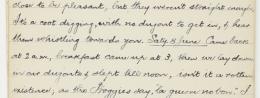 close to be pleasant, but they weren't straight enough
It's a rout digging, with no dugout to get in, & hear
them whistling towards you. Saty 8 June. Came back
at 2 a.m., breakfast came up at 3, then we lay down
in our dugouts & slept till noon, isn't it a rotten
existence, as the Froggies say, "a quoi no bon". I